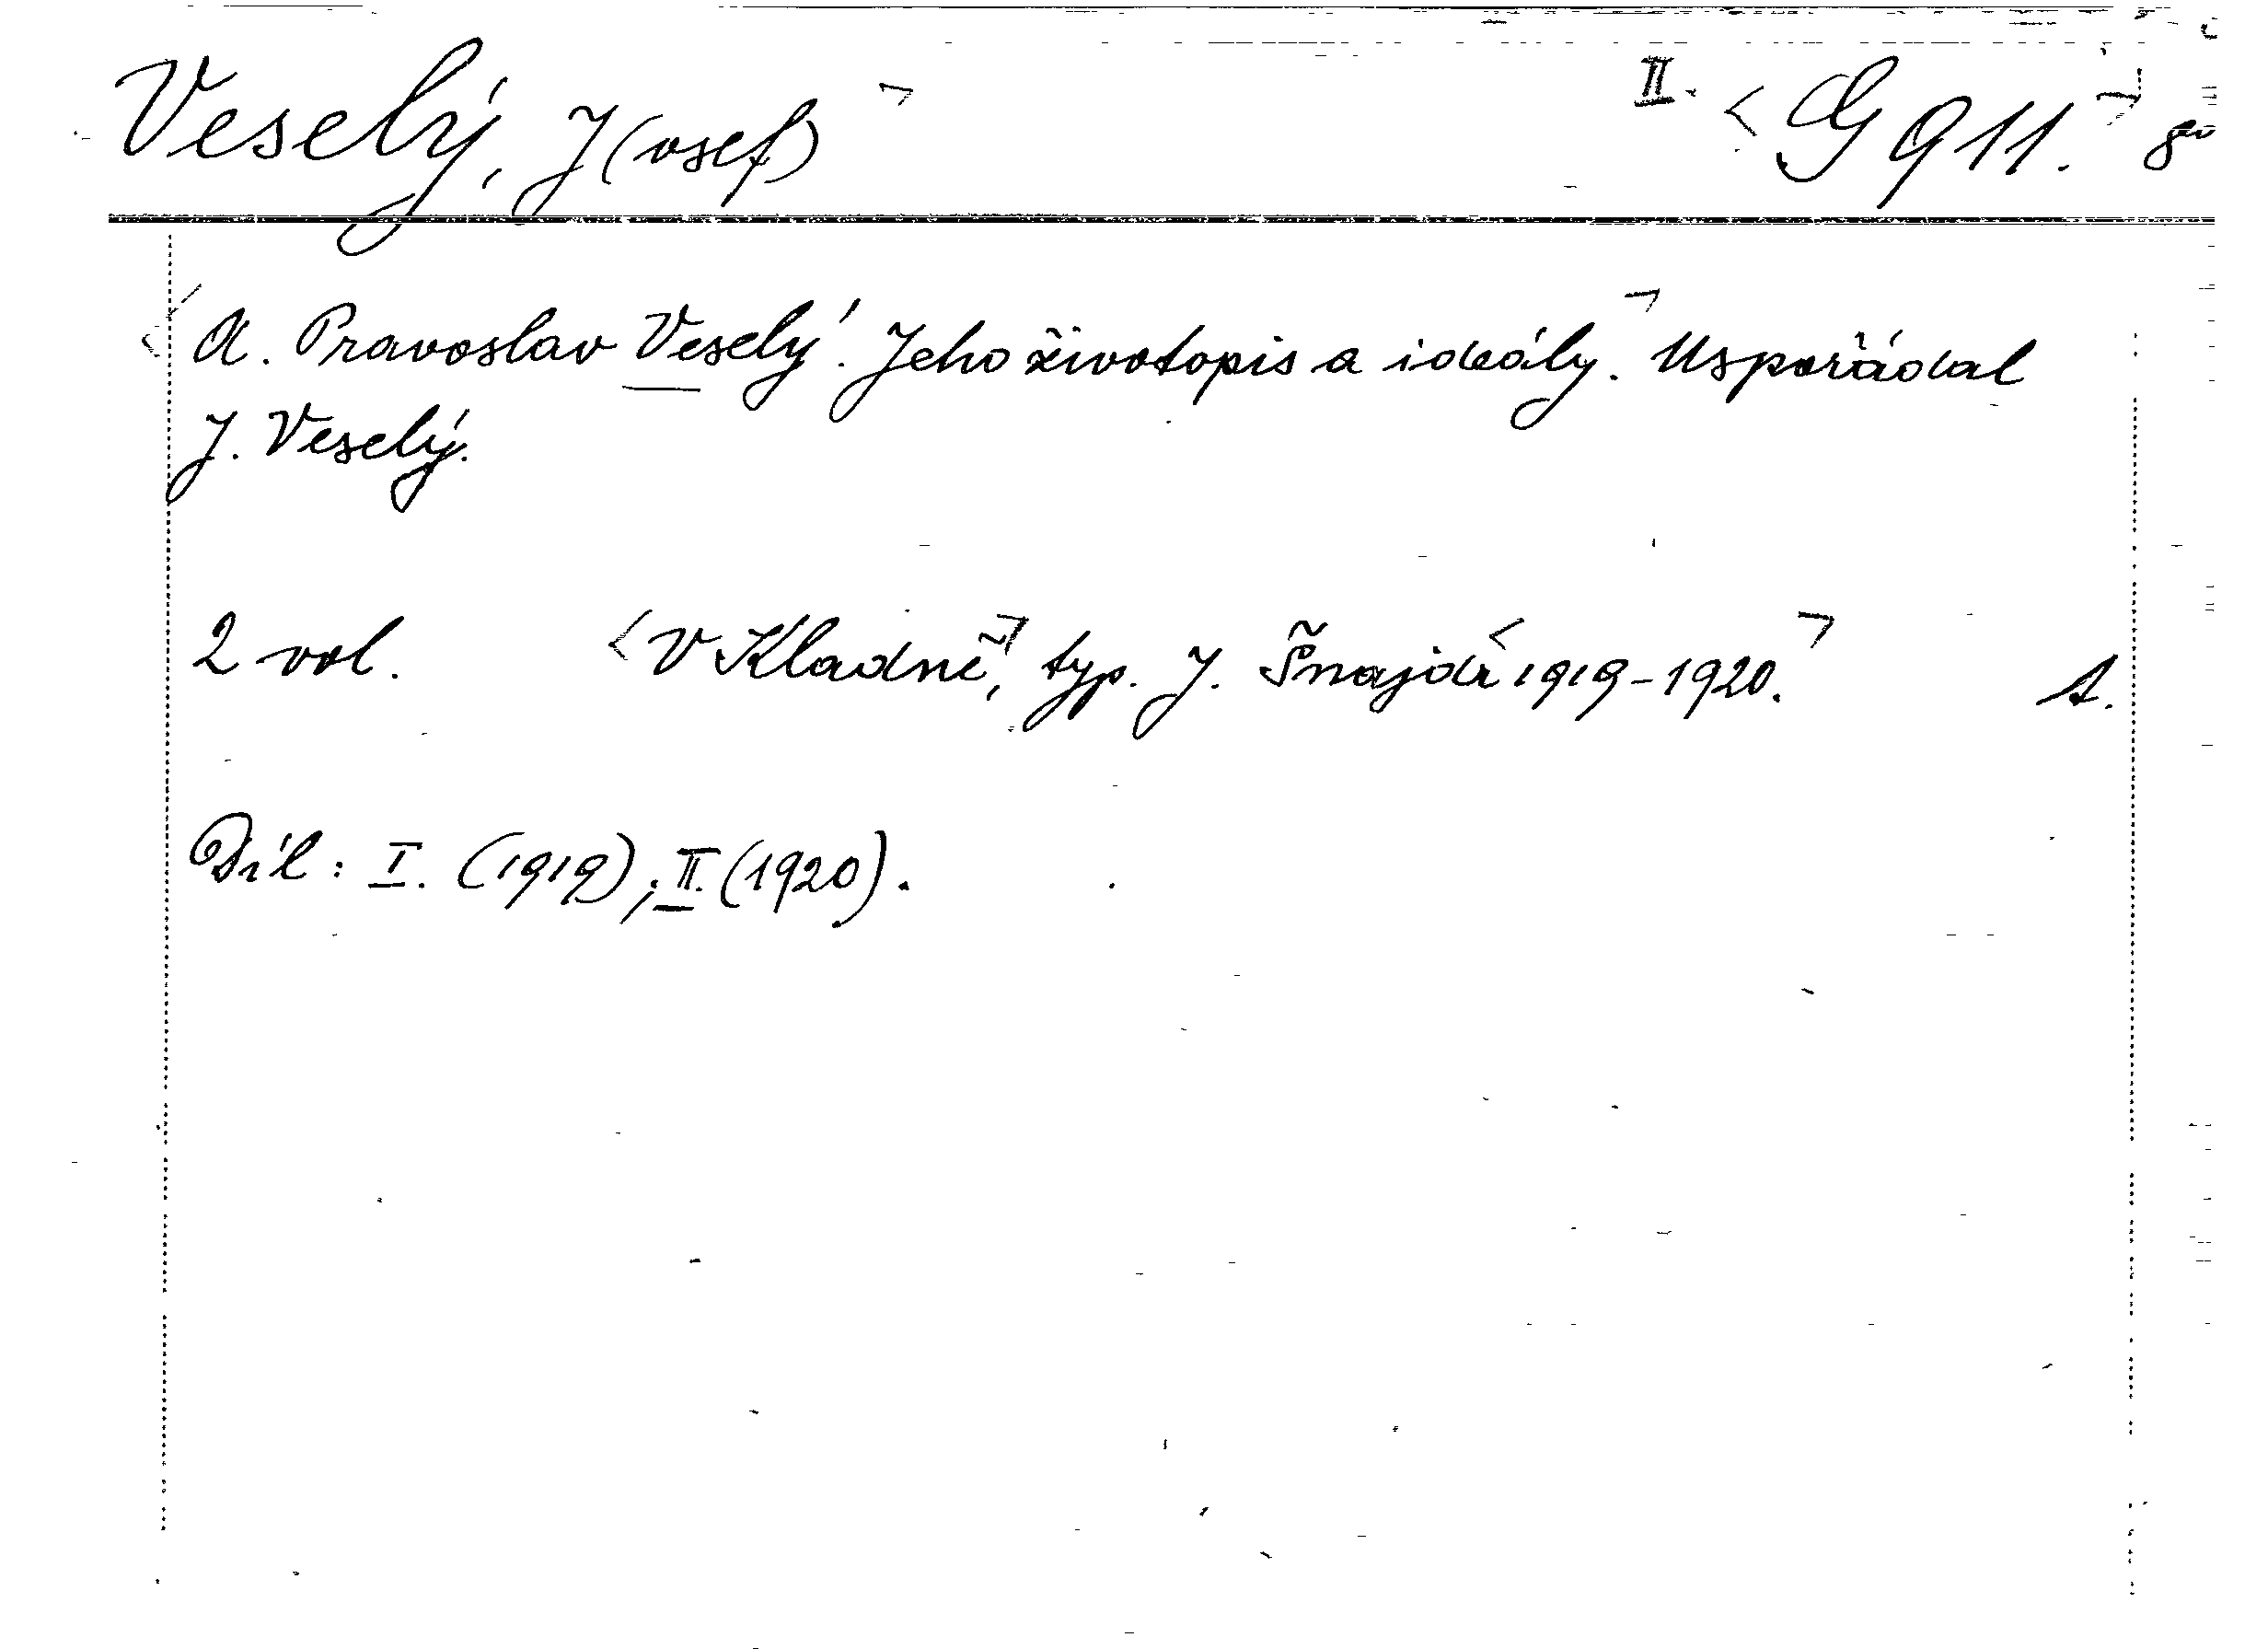 Veselý, J(osef) II. <G 911.> 8°
<A. Pravoslav Veselý. Jeho životopis a ideály.> Uspořádal
J. Veselý.
2 vol. <V Kladně,> typ. J. Šnajdr <1919-1920.> A.
Díl: I. (1919); II. (1920).